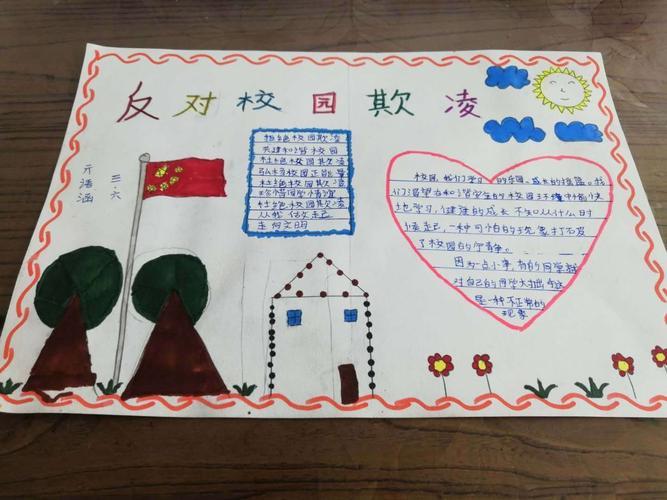 反对校园欺凌
三.六
亓浩涵
杜绝校园欺凌
共建和谐校园
杜绝校园欺凌
弘扬校园正能量
杜绝校园欺凌
珍惜同学情谊
杜绝校园欺凌
从我做起
走向文明
校园,我们学习的乐园、成长的摇篮。我
们渴望在和谐学生的校园环境中愉快
地学习,健康的成长,不知从什么时
候起,一种可怕的现象打破
了校园的宁静。
因为一点小事,有的同学就
对自己的同学大打出手这
是一种不正常的
现象